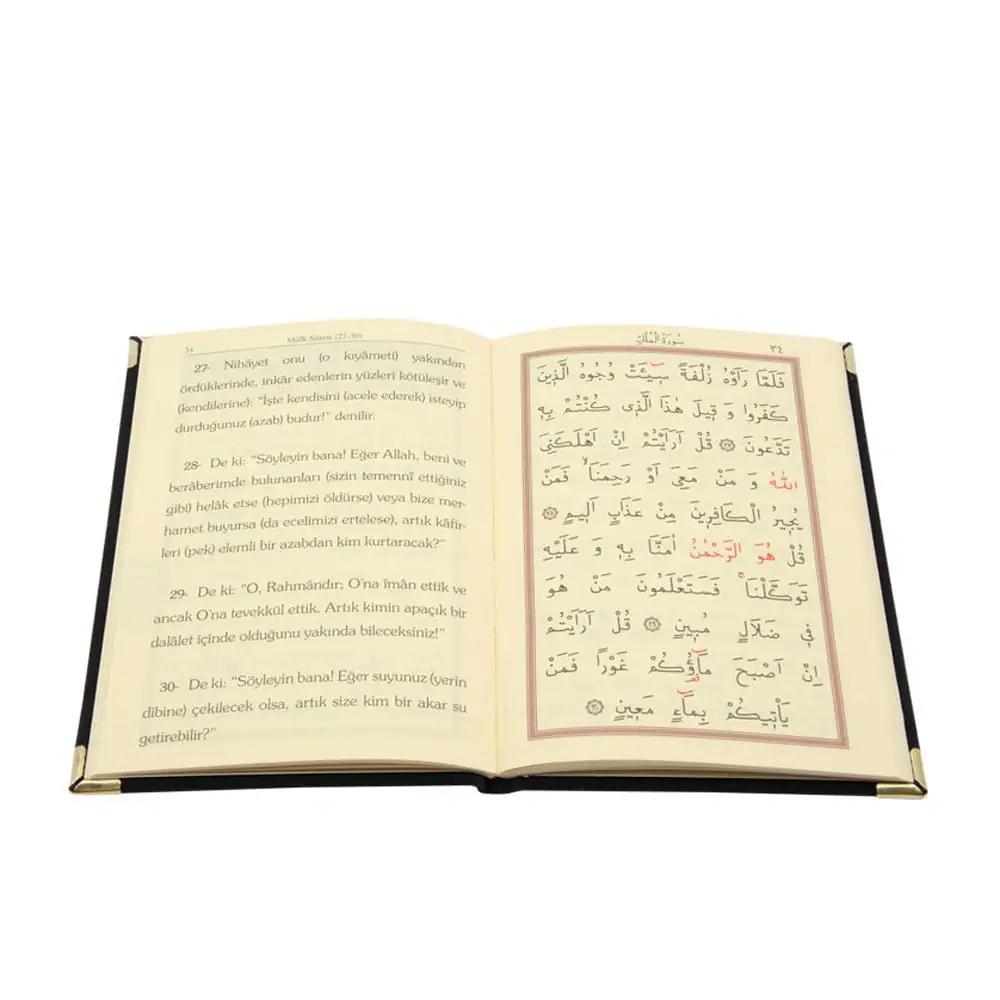 34 Mülk Sûresi (27-30)
27- Nihâyet onu (o kıyâmeti) yakından
ördüklerinde, inkâr edenlerin yüzleri kötüleşir ve
(kendilerine): “İşte kendisini (acele ederek) isteyip
durduğunuz (azab) budur!” denilir.
28- De ki: “Söyleyin bana! Eğer Allah, beni ve
berâberimde bulunanları (sizin temennî ettiğiniz
gibi) helâk etse (hepimizi öldürse) veya bize mer-
hamet buyursa (da ecelimizi ertelese), artık kâfir-
leri (pek) elemli bir azabdan kim kurtaracak?”
29- De ki: “O, Rahmândır; O’na îmân ettik ve
ancak O’na tevekkül ettik. Artık kimin apaçık bir
dalâlet içinde olduğunu yakında bileceksiniz!”
30- De ki: “Söyleyin bana! Eğer suyunuz (yerin
dibine) çekilecek olsa, artık size kim bir akar su
getirebilir?”
سُورَةُ الْمُلْكِ ٣٤
فَلَمَّا رَاَوْهُ زُلْفَةً سٖٓيـَٔتْ وُجُوهُ الَّذٖينَ
كَفَرُوا وَ قٖيلَ هٰذَا الَّذٖى كُنْتُمْ بِهٖ
تَدَّعُونَ ﴿٢٧﴾ قُلْ اَرَاَيْتُمْ اِنْ اَهْلَكَنِىَ
اللّٰهُ وَ مَنْ مَعِىَ اَوْ رَحِمَنَاۙ فَمَنْ
يُجٖيرُ الْكَافِرٖينَ مِنْ عَذَابٍ اَلٖيمٍ ﴿٢٨﴾
قُلْ هُوَ الرَّحْمٰنُ اٰمَنَّا بِهٖ وَ عَلَيْهِ
تَوَكَّلْنَاۚ فَسَتَعْلَمُونَ مَنْ هُوَ
فٖى ضَلَالٍ مُبٖينٍ ﴿٢٩﴾ قُلْ اَرَاَيْتُمْ
اِنْ اَصْبَحَ مَٓاؤُ۬كُمْ غَوْرًا فَمَنْ
يَاْتٖيكُمْ بِمَٓاءٍ مَعٖينٍ ﴿٣٠﴾